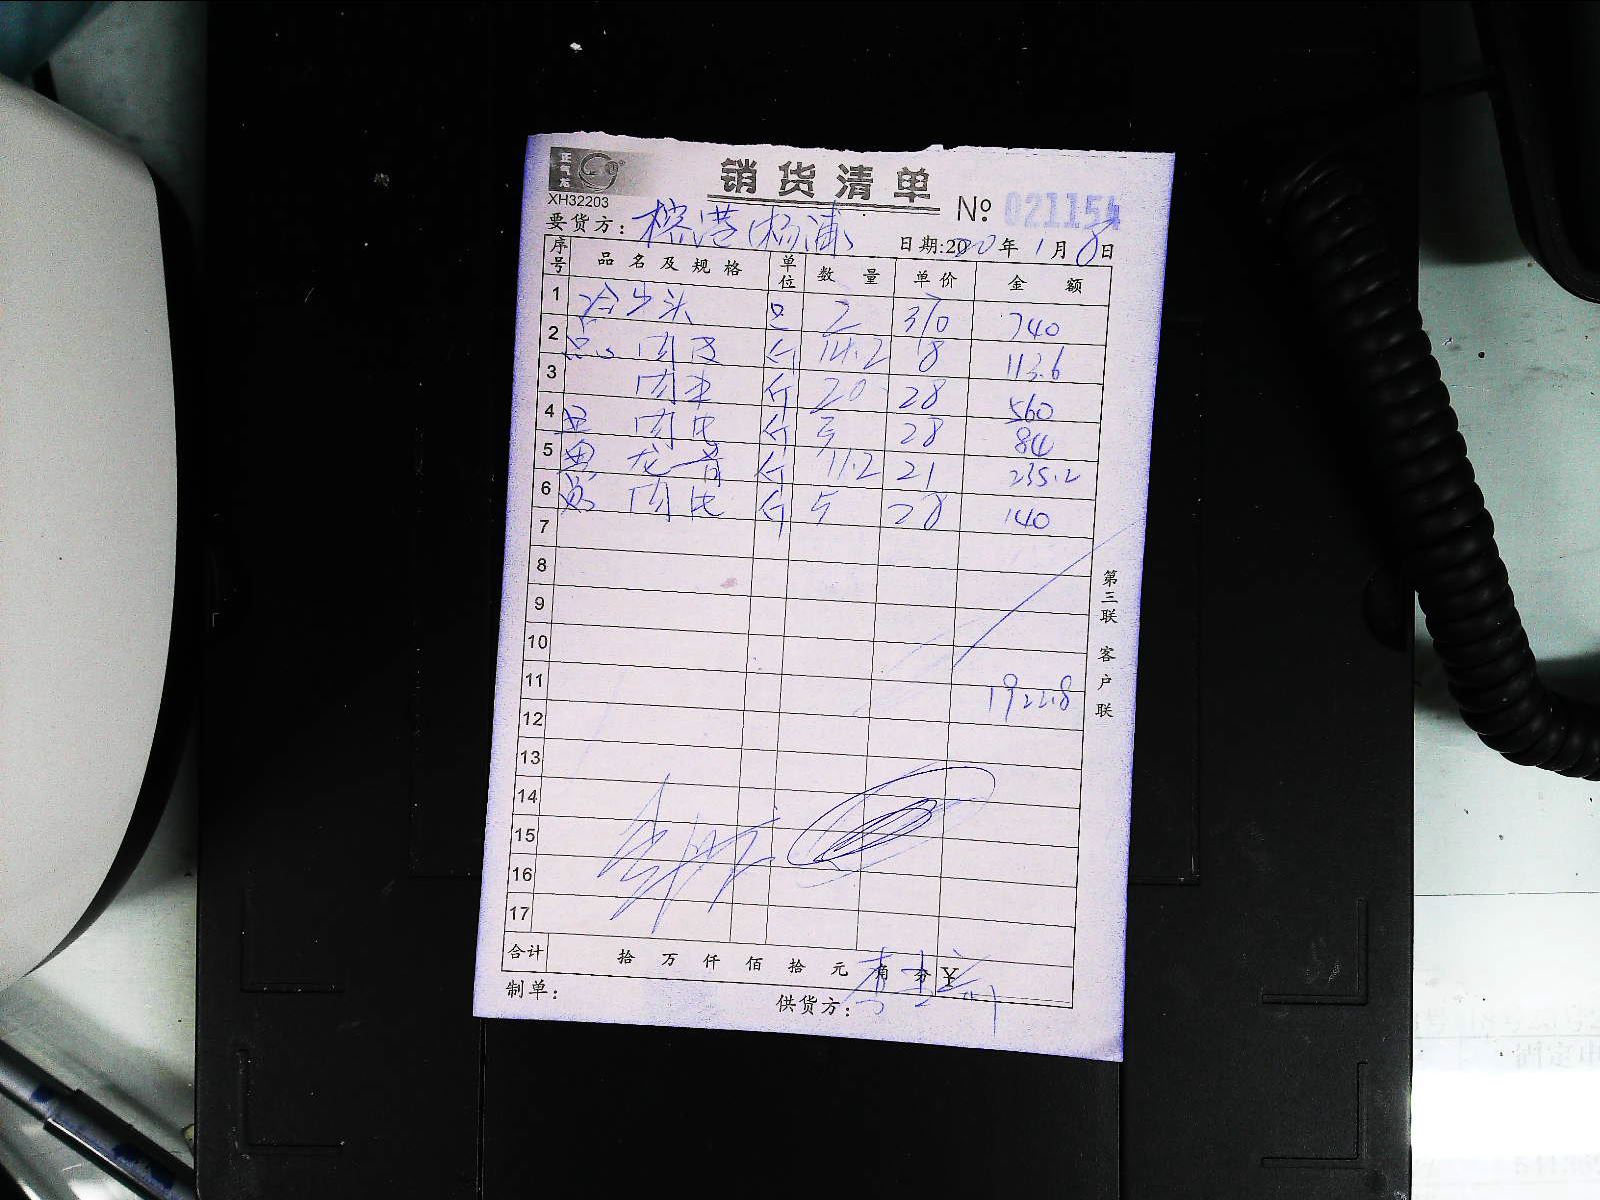 正气龙
销货清单
XH32203
№ 021154
要货方: 港(杨浦)
日期:2020年1月8日
序号 品名及规格 单位 数量 单价 金额
1 冷牛头 只 2 370 740
2 点 肉皮 斤 14.2 8 113.6
3 肉丰 斤 20 28 560
4 肉 斤 3 28 84
5 龙骨 斤 11.2 21 235.2
6 肉 斤 5 28 140
7
8
9
10
11 1922.8
12
13
14
15
16
17
合计 拾 万 仟 佰 拾 元 角 分 ¥
制单:
供货方:
第三联 客户联